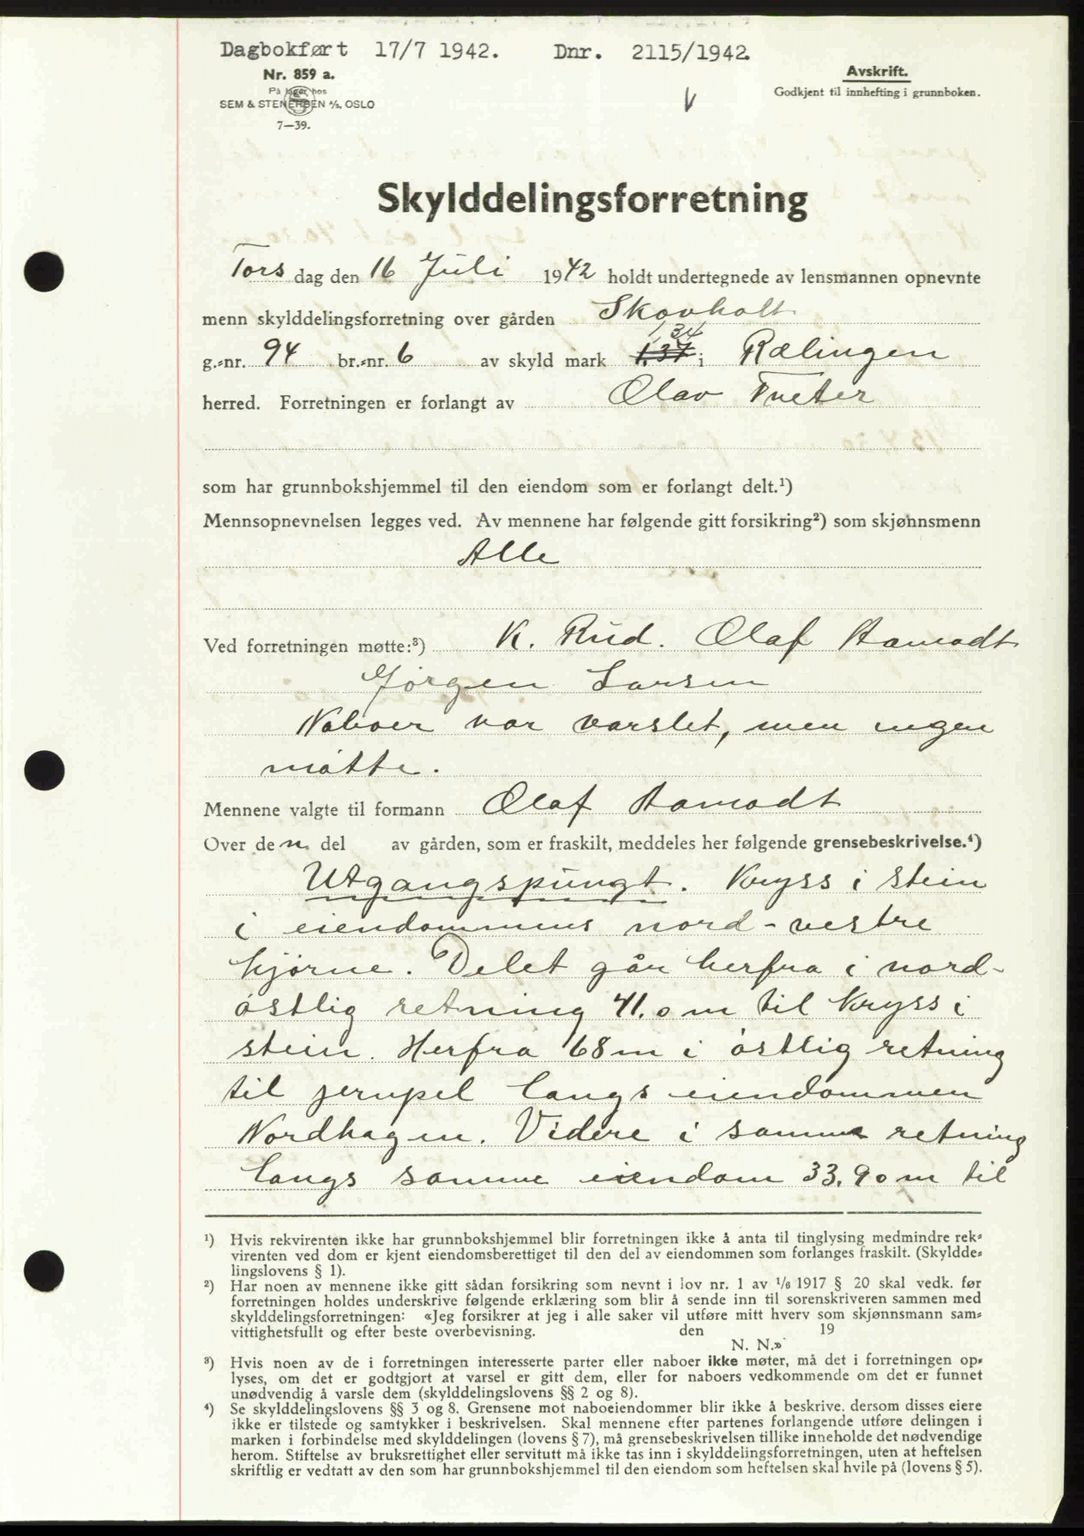 Dagbokført 17/7 1942. Dnr. 2115/1942.
Nr. 859 a.
På lager hos
SEM & STENERSEN A/S. OSLO
7—39.
Avskrift.
Godkjent til innhefting i grunnboken.
Skylddelingsforretning
Tors dag den 16 Juli 1942 holdt undertegnede av lensmannen opnevnte
menn skylddelingsforretning over gården Skovholt
1,34
g.-nr. 94 br.-nr. 6 av skyld mark 1,37 i Rælingen
herred. Forretningen er forlangt av Olav Tveter
som har grunnbokshjemmel til den eiendom som er forlangt delt.¹)
Mennsopnevnelsen legges ved. Av mennene har følgende gitt forsikring²) som skjønnsmenn
Alle
Ved forretningen møtte:³) K. Rud. Olaf Aamodt
Jörgen Larsen
Naboer var varslet, men ingen
mötte.
Mennene valgte til formann Olaf Aamodt
Over den del av gården, som er fraskilt, meddeles her følgende grensebeskrivelse.⁴)
Utgangspungt. Kryss i stein
i eiendommens nord-vestre
hjörne. Delet går herfra i nord-
östlig retning 41.0 m til Kryss i
stein. Herfra 68 m i östlig retning
til jernpel langs eiendommen
Nordhagen. Videre i samme retning
langs samme eiendom 33.90 m til
¹) Hvis rekvirenten ikke har grunnbokshjemmel blir forretningen ikke å anta til tinglysing medmindre rek-
virenten ved dom er kjent eiendomsberettiget til den del av eiendommen som forlanges fraskilt. (Skyldde-
lingslovens § 1).
²) Har noen av mennene ikke gitt sådan forsikring som nevnt i lov nr. 1 av 1/6 1917 § 20 skal vedk. før
forretningen holdes underskrive følgende erklæring som blir å sende inn til sorenskriveren sammen med
skylddelingsforretningen: «Jeg forsikrer at jeg i alle saker vil utføre mitt hverv som skjønnsmann sam-
vittighetsfullt og efter beste overbevisning. den 19
N. N.»
³) Hvis noen av de i forretningen interesserte parter eller naboer ikke møter, må det i forretningen op-
lyses, om det er godtgjort at varsel er gitt dem, eller for naboers vedkommende om det er funnet
unødvendig å varsle dem (skylddelingslovens §§ 2 og 8).
⁴) Se skylddelingslovens §§ 3 og 8. Grensene mot naboeiendommer blir ikke å beskrive, dersom disses eiere
ikke er tilstede og samtykker i beskrivelsen. Skal mennene efter partenes forlangende utføre delingen i
marken i forbindelse med skylddelingen (lovens § 7), må grensebeskrivelsen tillike inneholde det nødvendige
herom. Stiftelse av bruksrettighet eller servitutt må ikke tas inn i skylddelingsforretningen, uten at heftelsen
skriftlig er vedtatt av den som har grunnbokshjemmel til den eiendom som heftelsen skal hvile på (lovens § 5).